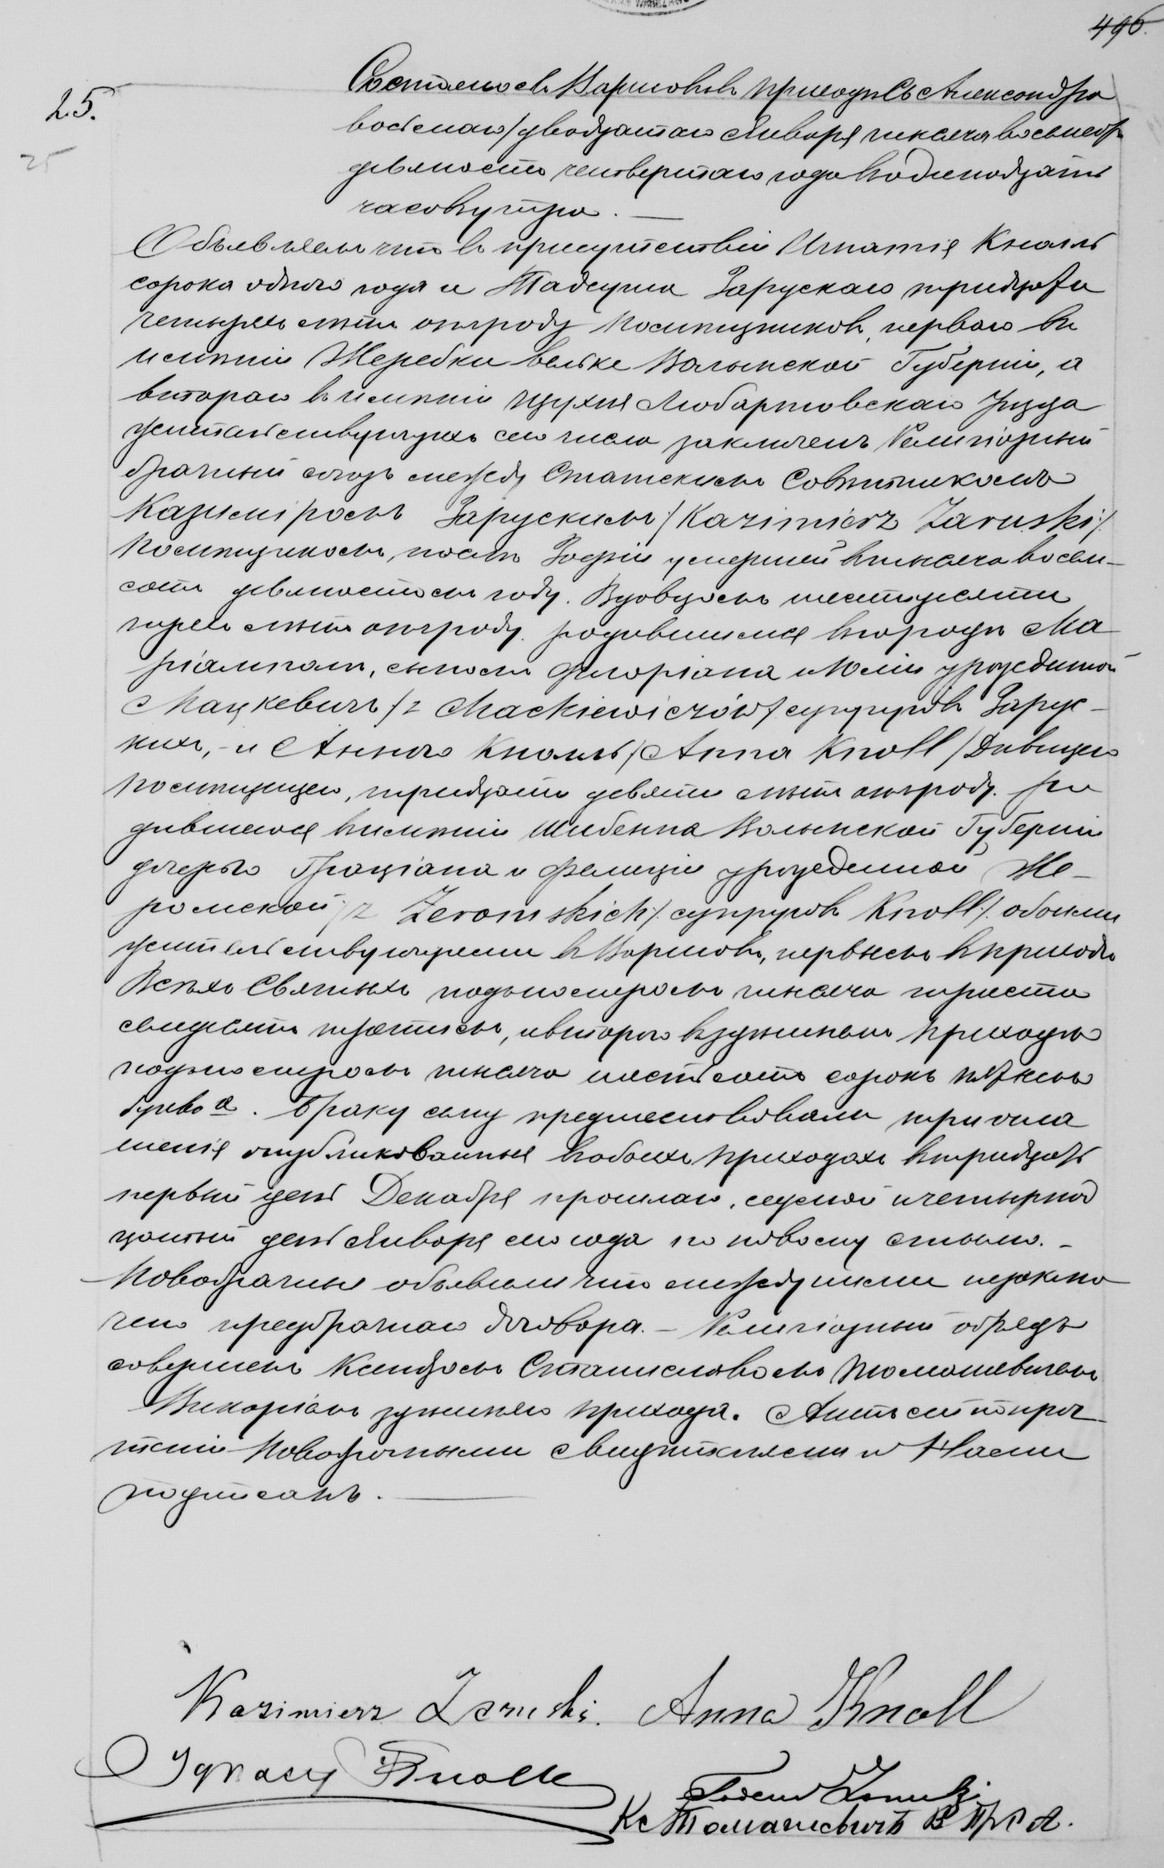 496.
25.
25
Состоялось въ Варшавѣ въ приходѣ Св Александра
восьмаго/двадцатаго Января тысяча восемсотъ
девяносто четвертаго года въ одиннадцать
часовъ утра. —
Объявляемъ что въ присутствіи Игнатія Кнолль
сорока одного года и Тадеуша Зарускаго тридцати
четырехъ лѣтъ отъ роду помѣщиковъ, перваго въ
имѣніи Жеребки вельке Волынской Губерніи, а
втораго въ имѣніи Любартовскаго Уѣзда
жительствующихъ сего числа заключенъ Религіозный
брачный союзъ между Статскимъ Совѣтникомъ
Казимиромъ Зарускимъ /Kazimierz Zaruski/
помѣщикомъ, послѣ Зофіи умершей въ тысяча восем-
сотъ девяностомъ году. Вдовцомъ шестидесяти
трехъ лѣтъ отъ роду. родившимся въ городѣ Ма
ріамполѣ, сыномъ Флоріана и Юліи урожденной
Мацкевичъ /z Mackiewiczów/ супруговъ Зарус-
кихъ, - и Анною Кнолль /Anna Knoll/ Дѣвицею
помѣщицею, тридцати девяти лѣтъ отъ роду. ро
дившеюся въ имѣніи Шибенна Волынской Губерніи
дочерью Граціана и Фелиціи урожденной Же-
ромской /z Żeromskich/ супруговъ Knoll/. обоими
жительствующими въ Варшавѣ, первымъ въ приходѣ
Всѣхъ Святыхъ подъ номеромъ тысяча триста
семдесятъ третьимъ, а второю въ здѣшнемъ приходѣ
подъ номеромъ тысяча шестьсотъ сорокъ пятымъ
буква а. Браку сему предшествовали три огла
шенія опубликованныя въ обоихъ приходахъ въ тридцать
первый день Декабря прошлаго, седмой и четырнад
цатый день Января сего года по новому стилю. -
Новобрачные объявили что между ними не заклю
чено предбрачнаго договора. - Религіозный обрядъ
совершенъ Ксендзомъ Станиславомъ Томашевичемъ
Викаріемъ здѣшняго прихода. Актъ сей по проч
теніи Новобрачными свидѣтелями и Нами
подписанъ. —
Kazimierz Zaruski. Anna Knoll
Ignacy Knoll
Tadeusz Zaruski.
Кс Томашевичъ В. Пр С А.